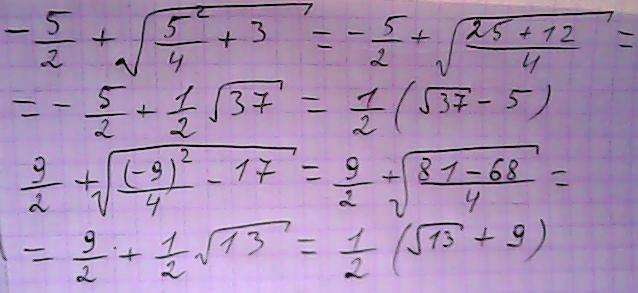 -5/2 + √(5²/4 + 3) = -5/2 + √((25 + 12)/4) =
= -5/2 + 1/2 √37 = 1/2 (√37 - 5)
9/2 + √((-9)²/4 - 17) = 9/2 + √((81 - 68)/4) =
= 9/2 + 1/2 √13 = 1/2 (√13 + 9)